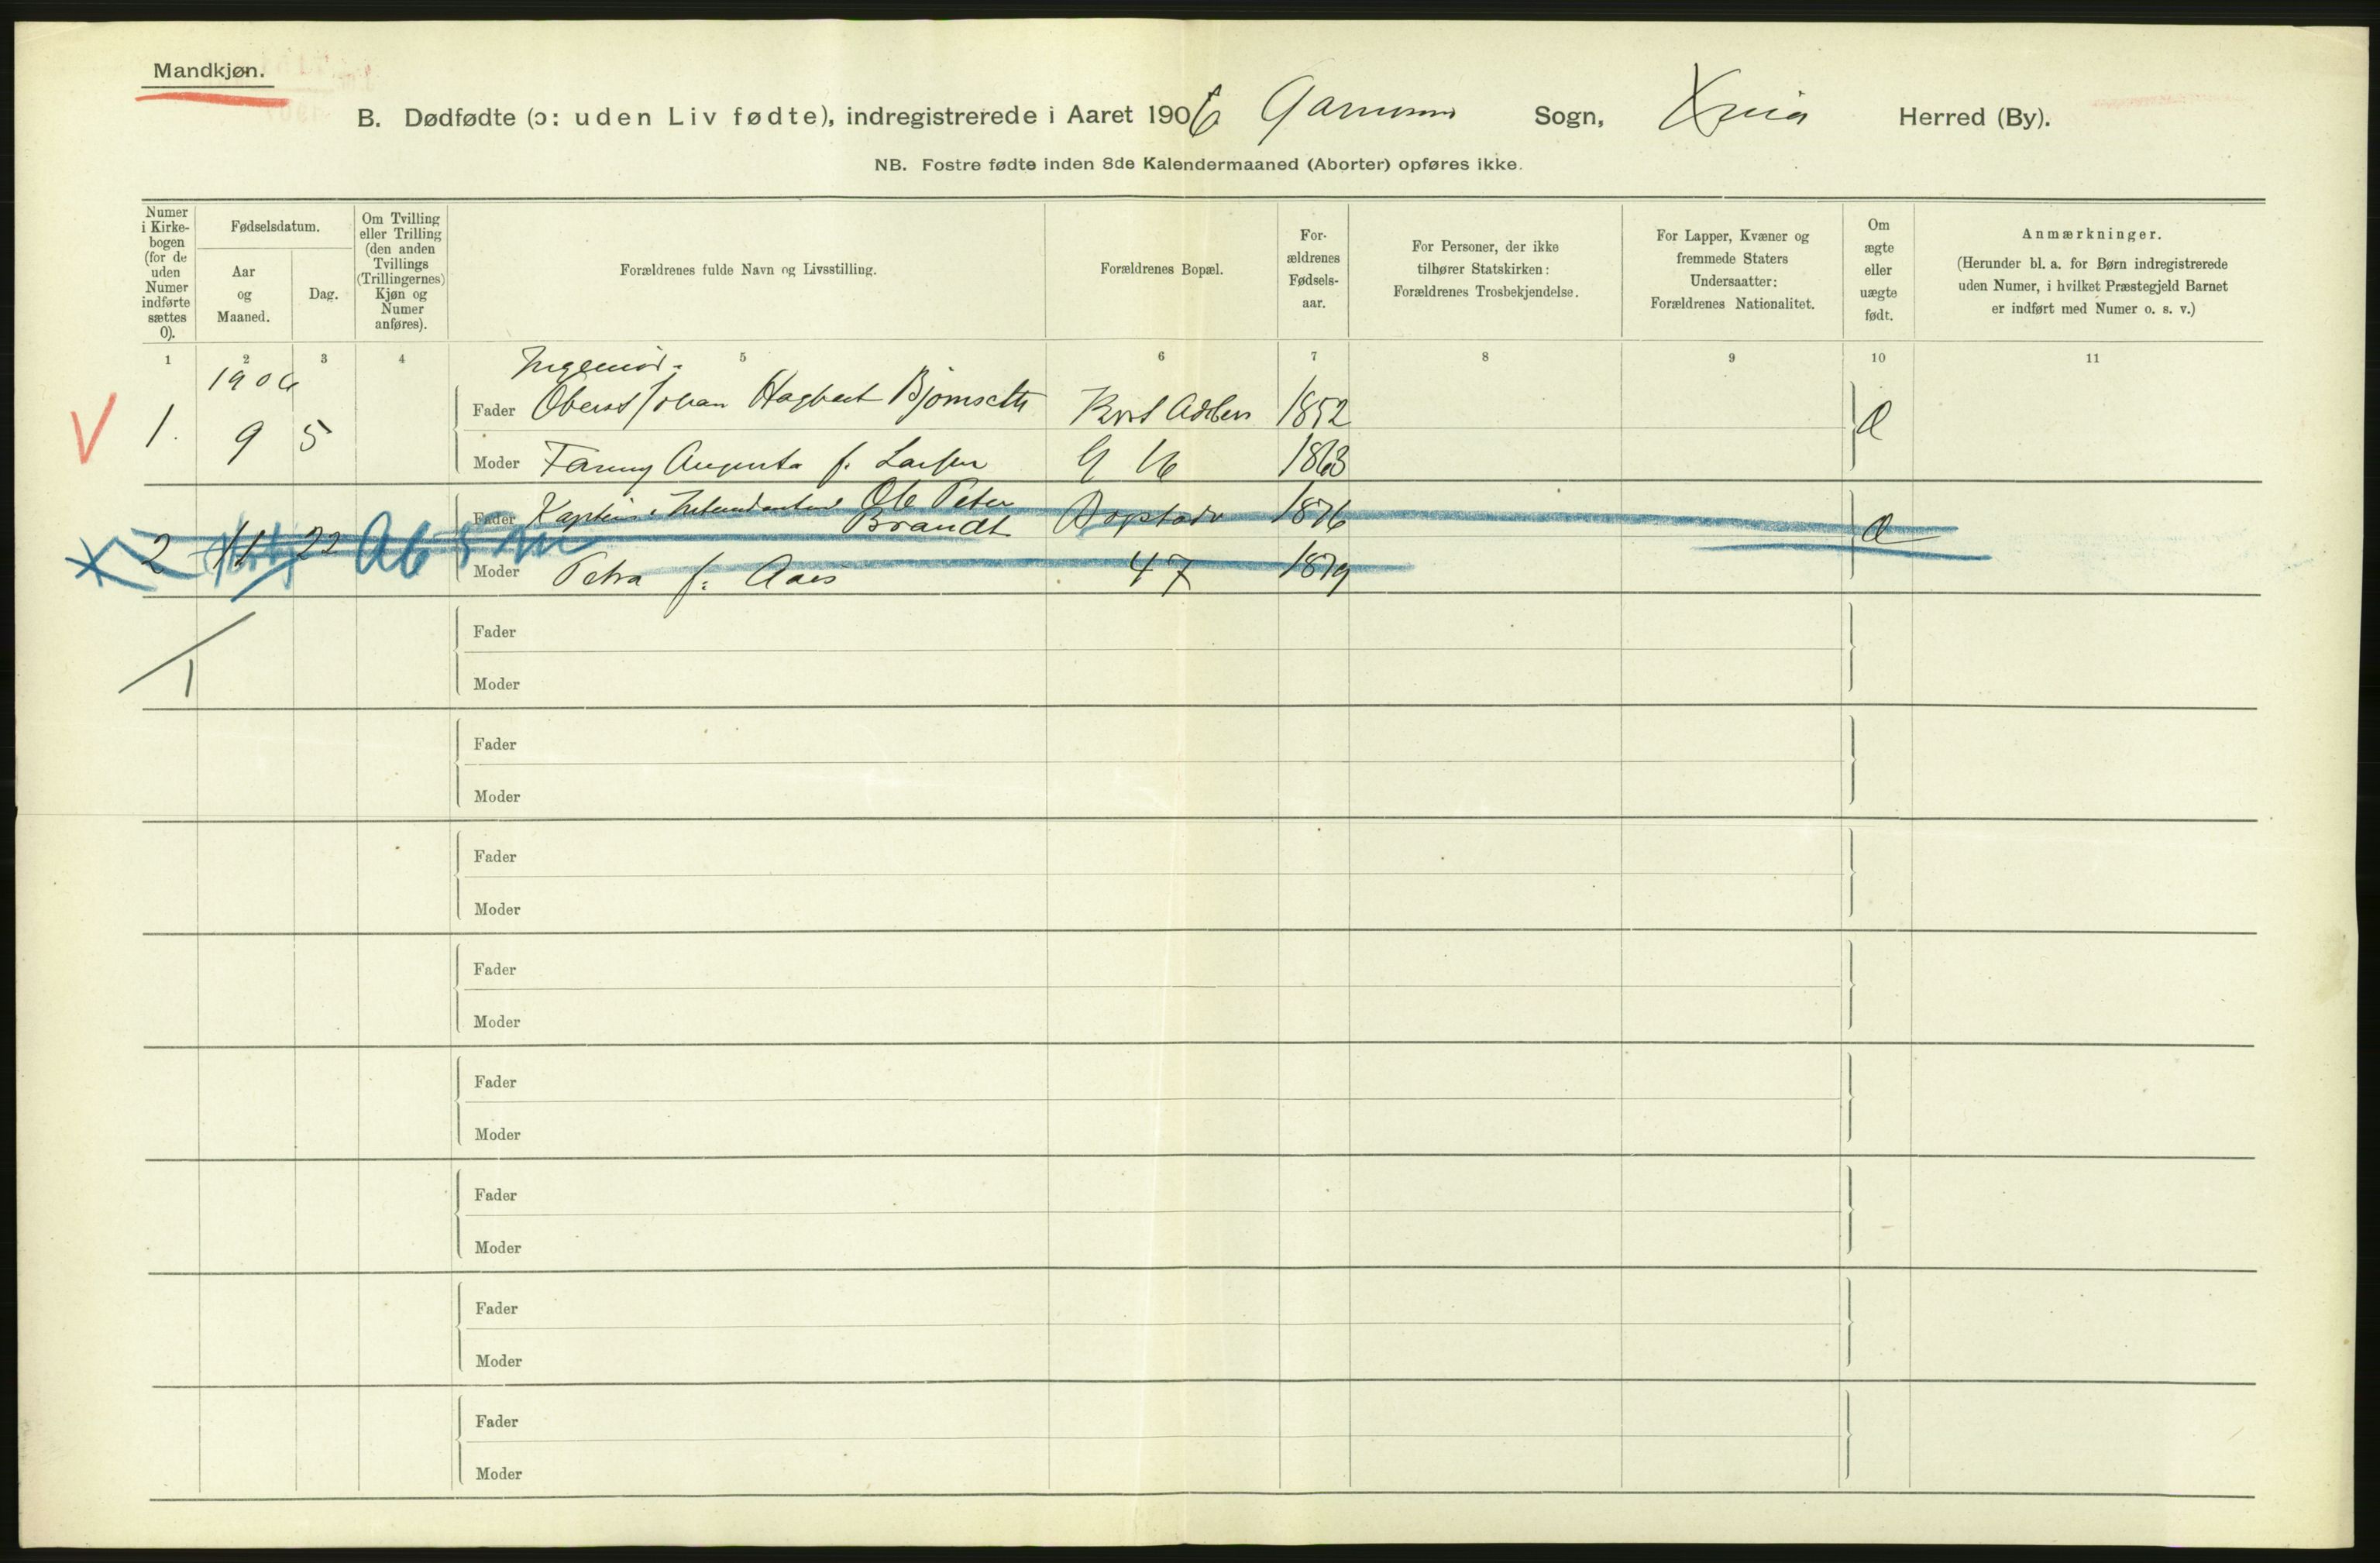 Mandkjøn.
B. Dødfødte (ɔ: uden Liv fødte), indregistrerede i Aaret 1906 Garnisons Sogn, Xnia Herred (By).
NB. Fostre fødte inden 8de Kalendermaaned (Aborter) opføres ikke.
Numer
i Kirke-
bogen
(for de
uden
Numer
indførte
sættes
0).
Fødselsdatum.
Aar
og
Maaned.
Dag.
Om Tvilling
eller Trilling
(den anden
Tvillings
(Trillingernes)
Kjøn og
Numer
anføres).
Forældrenes fulde Navn og Livsstilling.
Forældrenes Bopæl.
For-
ældrenes
Fødsels-
aar.
For Personer, der ikke
tilhører Statskirken:
Forældrenes Trosbekjendelse.
For Lapper, Kvæner og
fremmede Staters
Undersaatter:
Forældrenes Nationalitet.
Om
ægte
eller
uægte
født.
Anmærkninger.
(Herunder bl. a. for Børn indregistrerede
uden Numer, i hvilket Præstegjeld Barnet
er indført med Numer o. s. v.)
1 2 3 4 5 6 7 8 9 10 11
1906
Ingeniør-
V 1. 9 5 Fader Oberst Johan Hagbart Bjørnseth Kort Adelers 1852 Æ
Moder Fanny Augusta f. Larsen G 16 1863
Fader Kaptein Ole Peter
Brandt Bogstadv 1876
2 11 22 Ab 5 m Æ
Moder Petra f: Aaes 47 1879
1
Fader
Moder
Fader
Moder
Fader
Moder
Fader
Moder
Fader
Moder
Fader
Moder
Fader
Moder
Fader
Moder